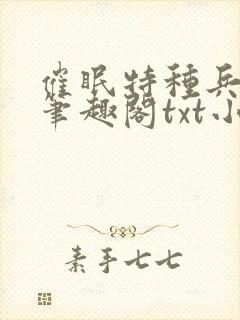 催眠特種兵
筆趣閣txt小
素手七七